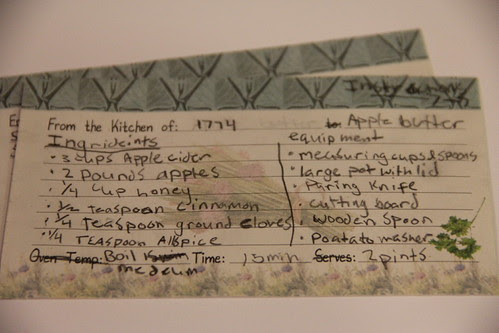 Instructions
From the Kitchen of: 1774 Apple butter
Ingrideints
• 3 cups Apple cider
• 2 pounds apples
• 1/4 cup honey
• 1/2 Teaspoon Cinnamon
• 1/4 Teaspoon ground cloves
• 1/4 Teaspoon Alspice
equipment
• measuring cups & spoons
• large pot with lid
• Paring Knife
• cutting board
• wooden spoon
• Poatato masher
Oven Temp: Boil Time: 15 min Serves: 2 pints
medeum